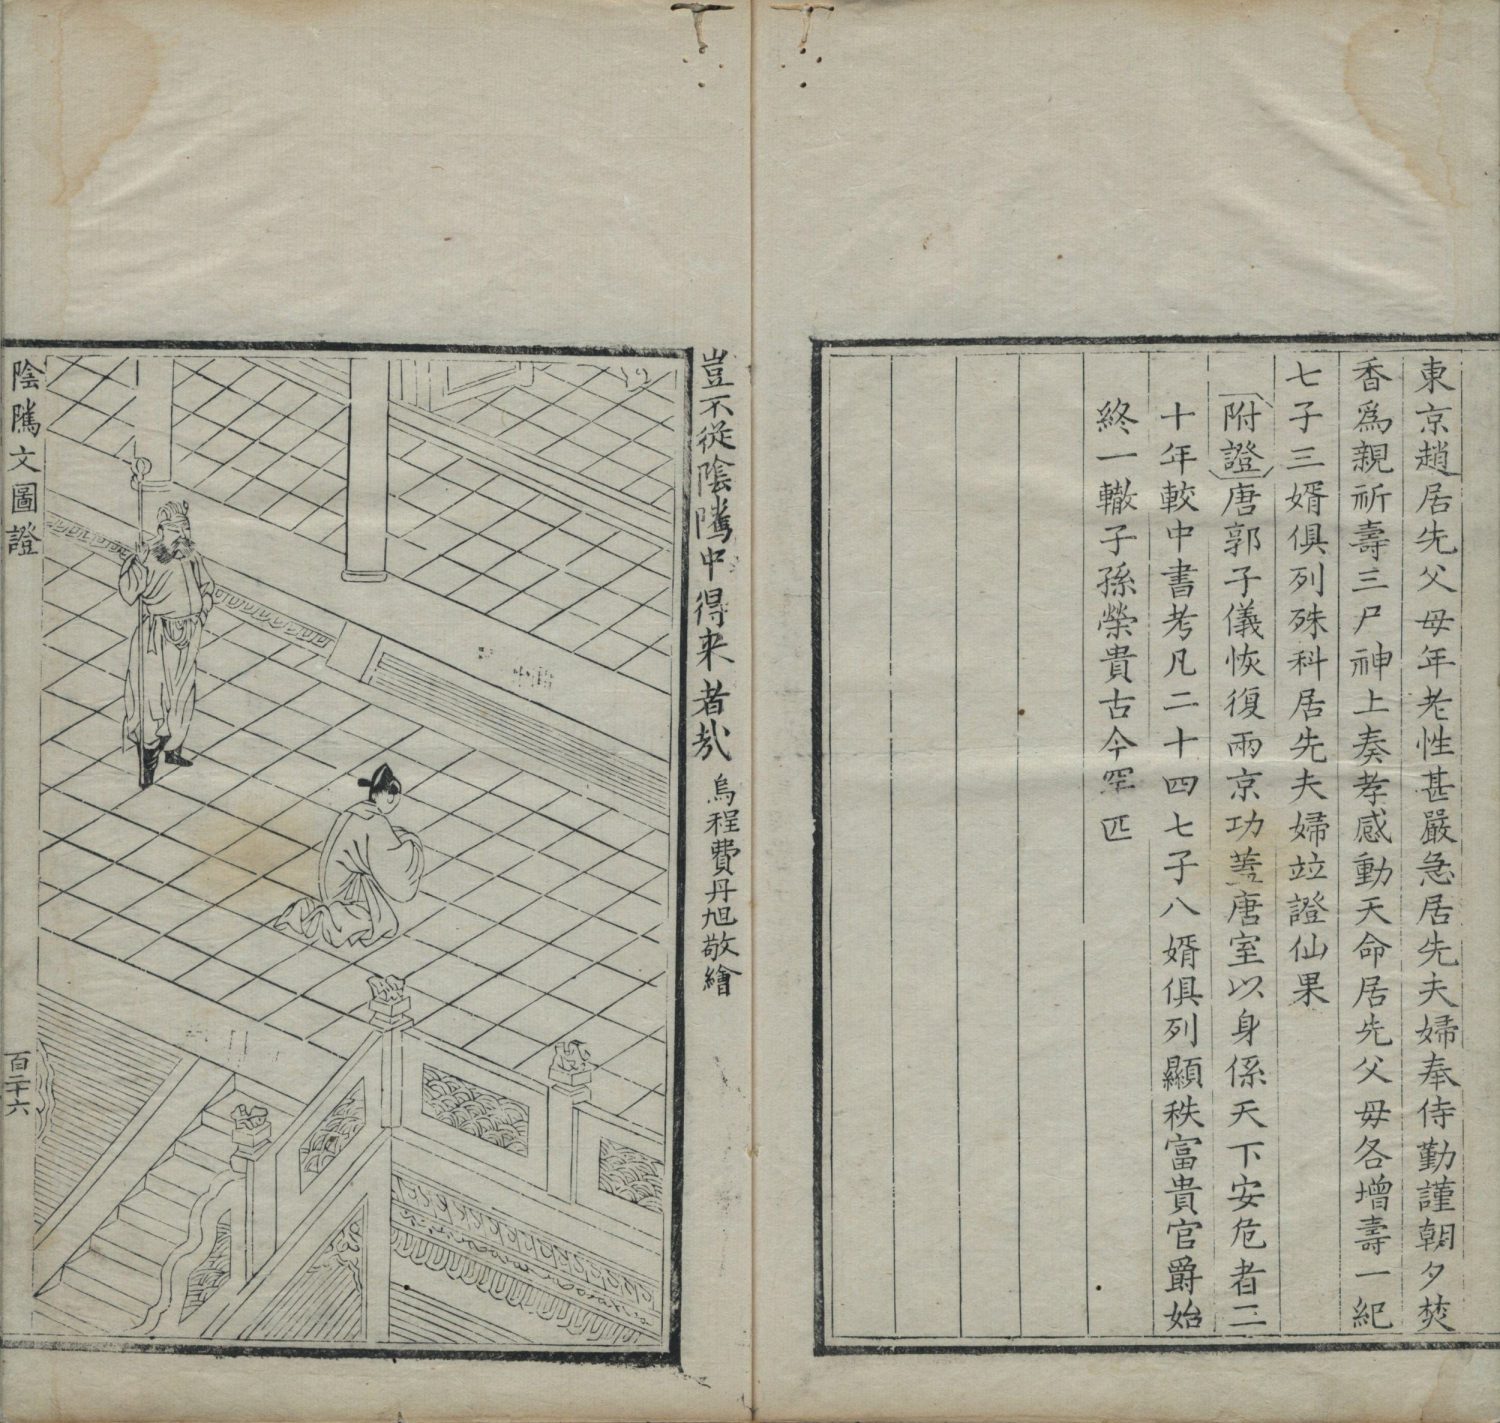 東京趙居先父母年老性甚嚴急居先夫婦奉侍勤謹朝夕焚
香爲親祈壽三尸神上奏孝感動天命居先父母各增壽一紀
七子三婿俱列殊科居先夫婦竝證仙果
附證唐郭子儀恢復兩京功蓋唐室以身係天下安危者二
十年較中書考凡二十四七子八婿俱列顯秩富貴官爵始
終一轍子孫榮貴古今罕匹
豈不從陰隲中得來者哉
烏程費丹旭敬繪
陰隲文圖證
百二十六